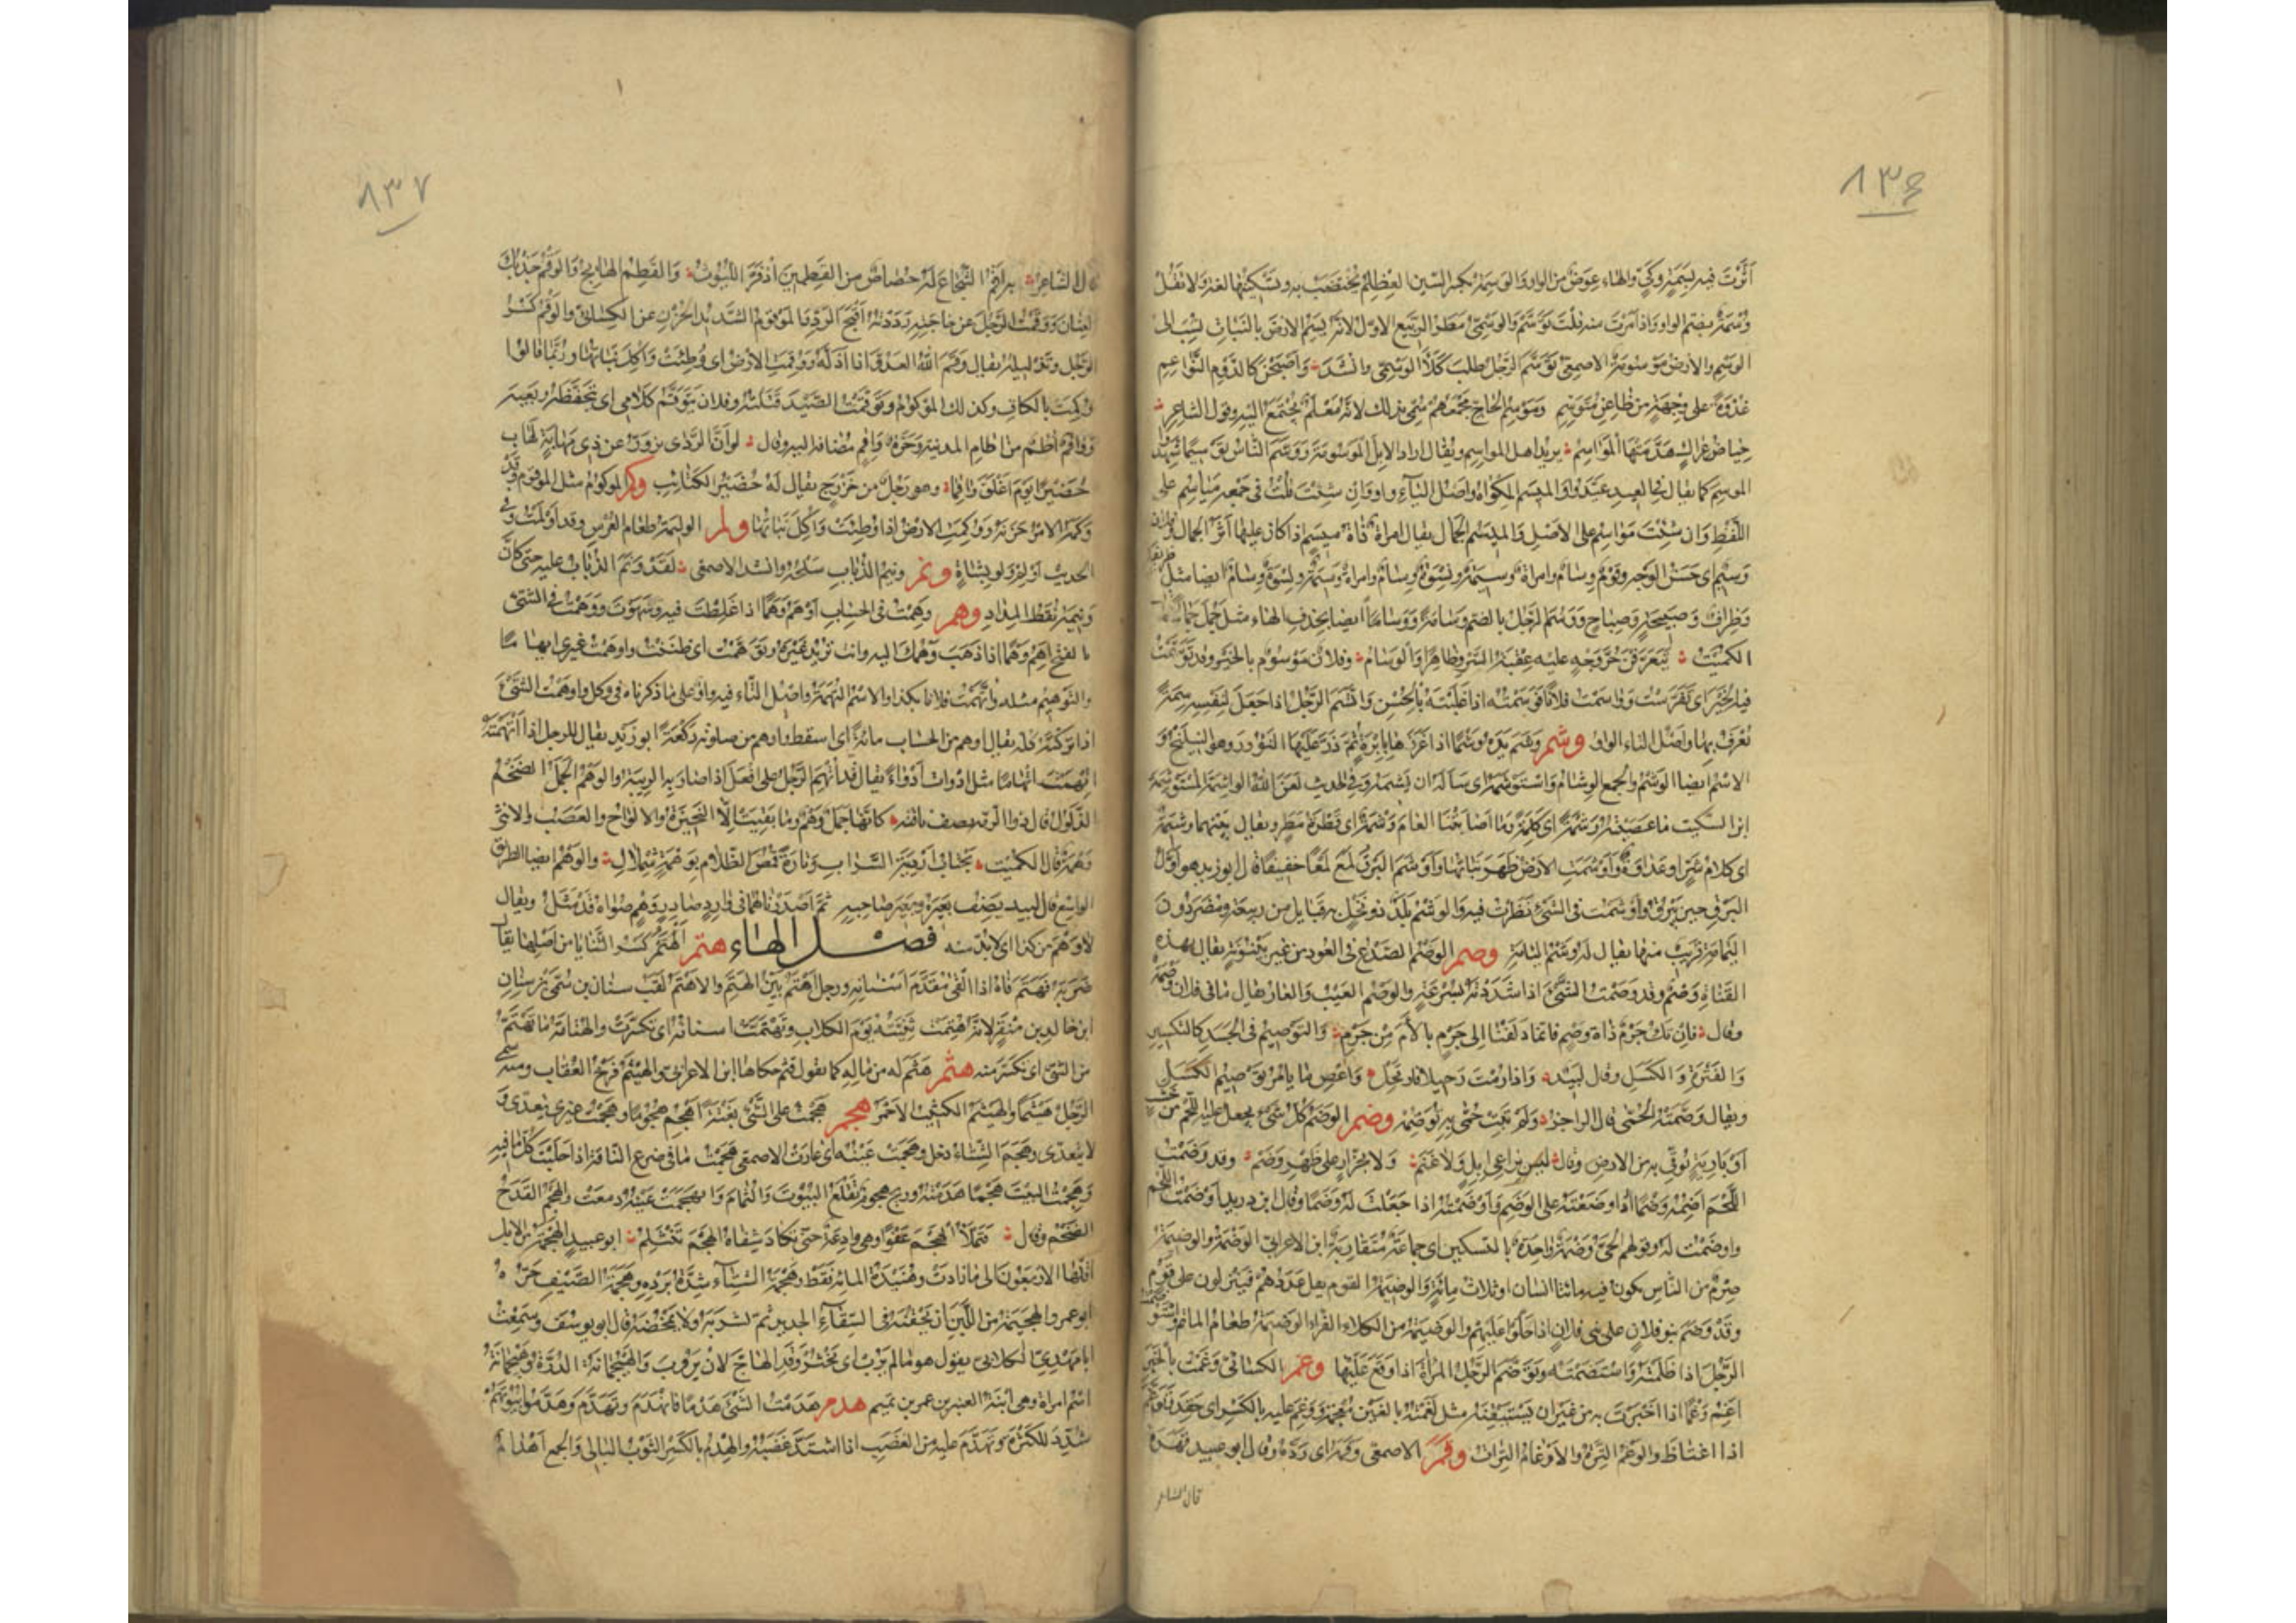 ٨٣٦
أثرت فيه بسمة وكي والهاء عوض من الواو والوسمة بكسر السين العظلم يختضب به وتسكينها لغة ولا تقل
وسمة بضم الواو واذا امرت منه قلت توسم والوسمي مطر الربيع الاول لانه يسم الارض بالنبات نسب الى
الوسم والارض موسومة الاصمعي توسم الرجل طلب كلأ الوسمي وانشد واصبحن كالدوم النواعم
غدوة على وجهة من ظاعن متوسم وموسم الحاج مجمعهم سمي بذلك لانه معلم يجتمع اليه وقول الشاعر
حياض عراك هدمتها المواسم يريد اهل المواسم ويقال اراد الابل الموسومة ووسم الناس توسيما شهدوا
الموسم كما يقال في العيد عيدوا والميسم المكواة واصل الياء واو وان شئت قلت في جمعه مياسم على
اللفظ وان شئت مواسم على الاصل والميسم الجمال يقال امراة ذاة ميسم اذا كان عليها اثر الجمال وفلان
وسيم اى حسن الوجه وقوم وسام وامراة وسيمة ونسوة وسام ايضا مثل ظريفة
وظراف وصبيحة وصباح ووسم الرجل بالضم وسامة ووساما ايضا بحذف الهاء مثل جمل جمالا
الكميت يتعرفن حر وجه عليه عقبة السرو ظاهرا والوسام وفلان موسوم بالخير وقد توسمت
فيه الخير اى تفرست وواسمت فلانا فوسمته اذا غلبته بالحسن واتسم الرجل اذا جعل لنفسه سمة
يعرف بها واصل التاء الواو وشم وشم يده وشما اذا غرزها بابرة ثم ذر عليها النؤور وهو النيلنج و
الاسم ايضا الوشم والجمع الوشام واستوشمه اى سأله ان يشمه وفي الحديث لعن الله الواشمة والمستوشمة
ابن السكيت ما عصيته وشمة اى كلمة وما اصابتنا العام وشمة اى قطرة مطر ويقال بينهما وشيمة
اى كلام شر او عداوة واوشمت الارض ظهر نباتها واوشم البرق لمع لمعا خفيفا قال ابو زيد هو اول
البرق حين يبرق واوشمت في الشئ نظرت فيه والوشم بلد ذو نخل به قبايل من ربيعة ومضر دون
اليمامة قريب منها يقال له وشم اليمامة وصم الوصم الصدع في العود من غير بينونة يقال بهذه
القناة وصم وقد وصمت الشئ اذا شددته بسرعة والوصم العيب والعار يقال ما في فلان وصمة
وقال فان تك جرم ذاة وصم فانما دلفنا الى جرم بالأم من جرم والتوصيم في الجسد كالتكسير
والفترة والكسل وقال لبيد واذا رمت رحيلا فارتحل واعص ما يامر توصيم الكسل
ويقال وصمته الحمى قال الراجز ولم تبت حمى به توصمه وضم الوضم كل شئ يجعل عليه اللحم من خشب
او بارية يوقى به من الارض وقال ليس براعي ابل ولا غنم ولا بجزار على ظهر وضم وقد وضمت
اللحم اضمه وضما اذا وضعته على الوضم واوضمته اذا جعلت له وضما وقال ابن دريد اوضمت اللحم
واوضمت له وقولهم الحى وضمة واحدة بالتسكين اى جماعة متقاربة ابن الاعرابي الوضمة والوضيمة
صرم من الناس يكون فيه مائتا انسان او ثلاث مائة والوضيمة القوم يقل عددهم فينزلون على قوم
وقد وضم بنو فلان على بني فلان اذا حلوا عليهم والوضيمة من الكلاء الفراء الوضيمة طعام الماتم واستوضمت
الرجل اذا ظلمته واستضمته وتوضم الرجل المراة اذا وقع عليها وغم الكسائي وغمت بالخبر
اغم وغما اذا اخبرت به من غير ان يستيقنه مثل لغمت بالغين معجمة ووغم عليه بالكسر اى حقد وتوغم
اذا اغتاظ والوغم الترة والاوغام الترات وقم الاصمعي وقمه اى رده وقال ابو عبيد قهره
قال الشاعر
٨٣٧
قال الشاعر به اقم الشجاع له حصاص من القطمين اذ فر الليوث والقطم الهايج والوقم جذبك
العنان ووقمت الرجل عن حاجته رددته اقبح الرد والموقوم الشديد الحزن عن الكسائي والوقم كسر
الرجل وتذليله يقال وقم الله العدو اذا اذله ووقمت الارض اى وطئت واكل نباتها وربما قالوا
وكمت بالكاف وكذلك الموكوم وتوقمت الصيد قتلته وفلان يتوقم كلامي اى يتحفظه ويعيه
وواقم اطم من اطام المدينة وحرة واقم مضافة اليه وقال لو ان الردى يزور عن ذى مهابة لهاب
حضيرا يوم اغلق واقما وهو رجل من خزرج يقال له حضير الكتائب وكم الموكوم مثل الموقوم وقد
وكمه الامر حزنه ووكمت الارض اذا وطئت واكل نباتها ولم الوليمة طعام العرس وقد اولمت وفي
الحديث اولم ولو بشاة ونم ونيم الذباب سلحه وانشد الاصمعي لقد ونم الذباب عليه حتى كان
ونيمه نقط المداد وهم وهمت في الحساب اوهم وهما اذا غلطت فيه وسهوت ووهمت في الشئ
بالفتح اهم وهما اذا ذهب وهمك اليه وانت تريد غيره وتوهمت اى ظننت واوهمت غيرى ايهاما
والتوهيم مثله واتهمت فلانا بكذا والاسم التهمة واصل التاء فيه واو على ما ذكرناه في وكل واوهمت الشئ
اذا تركته كله يقال اوهم من الحساب مائة اى اسقط واوهم من صلوته ركعة ابو زيد يقال للرجل اذا اتهمته
اتهمت اتهاما مثل ادوات ادواء يقال قد اتهم الرجل على افعل اذا صارت به الريبة والوهم الجمل الضخم
الذلول قال ذوا الرمة يصف ناقته كانها جمل وهم وما بقيت الا النحيزة والالواح والعصب والانثى
وهمة قال الكميت يجتاب اردية السراب وتارة قمص الظلام بوهمة شملال والوهم ايضا الطريق
الواسع قال لبيد يصف بعيره وبعير صاحبه ثم اصدرناهما في وارد صادر وهم صواه قد مثل ويقال
لا وهم من كذا اى لا بد منه فصل الهاء هتم الهتم كسر الثنايا من اصلها يقال
ضربه فهتم فاه اذا القى مقدم اسنانه ورجل اهتم بين الهتم والاهتم لقب سنان بن سمي بن سنان
ابن خالد بن منقر لانه هتمت ثنيته يوم الكلاب وتهتمت اسنانه اى تكسرت والهتامة ما تهتم
من الشئ اى تكسر منه هثم هثم له من ماله كما تقول قثم حكاها ابن الاعرابي والهيثم فرخ العقاب ومنه سمي
الرجل هيثما والهيثم الكثيب الاحمر هجم هجمت على الشئ بغتة اهجم هجوما وهجمت غيرى يتعدى و
لا يتعدى وهجم الشتاء دخل وهجمت عينه اى غارت الاصمعي هجمت ما في ضرع الناقة اذا حلبت كل ما فيه
وهجمت البيت هجما هدمته وريح هجوم تقلع البيوت والثمام وانهجمت عينه دمعت والهجم القدح
الضخم وقال فتملأ الهجم عفوا وهي وادعة حتى تكاد شفاه الهجم تنثلم ابو عبيد الهجمة من الابل
اقلها الاربعون الى ما زادت وهنيدة المائة فقط وهجمة الشتاء شدة برده وهجمة الصيف حره
ابو عمرو الهجيمة من اللبن ان تحقنه في السقاء الجديد ثم تشربه ولا تمخضه قال ابو يوسف وسمعت
ابا مهدى الكلابي يقول هو ما لم يرب اى يخثر وقد الهاج لان يروب والهيجمانة الدرة وهيجمانة
اسم امراة وهي ابنة العنبر بن عمر بن تميم هدم هدمت الشئ هدما فانهدم وتهدم وهدموا بيوتهم
شدد للكثرة وتهدم عليه من الغضب اذا اشتد غضبه والهدم بالكسر الثوب البالي والجمع اهدام